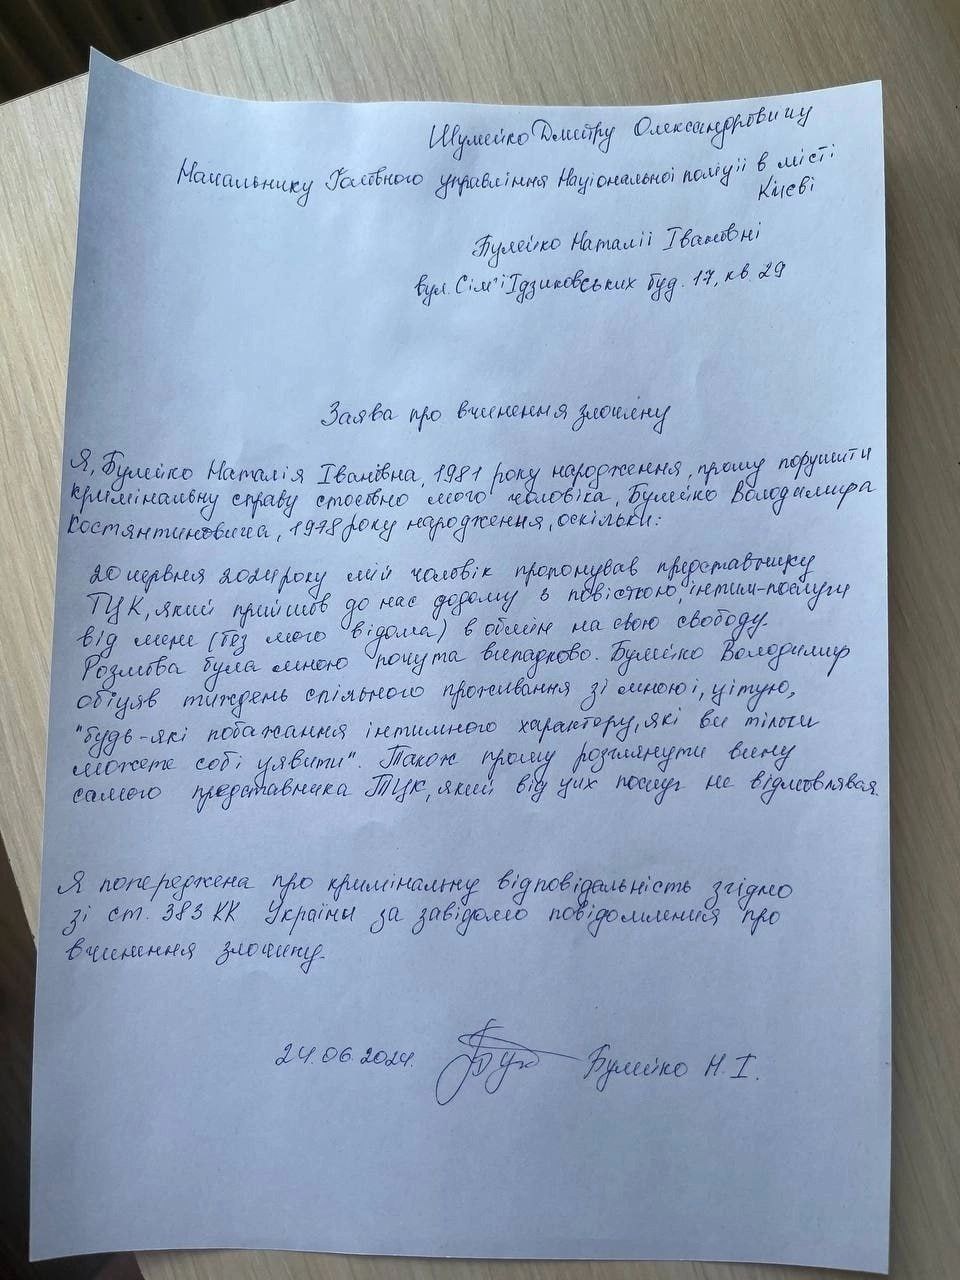 Шумейко Дмитру Олександровичу
Начальнику Головного управління Національної поліції в місті
Києві
Булейко Наталії Івановні
вул. Сім'ї Ідзиковських буд. 17, кв. 29
Заява про вчинення злочину
Я, Булейко Наталія Іванівна, 1981 року народження, прошу порушити
кримінальну справу стосовно мого чоловіка, Булейко Володимира
Костянтиновича, 1978 року народження, оскільки:
20 червня 2024 року мій чоловік пропонував представнику
ТЦК, який прийшов до нас додому з повісткою, інтим-послуги
від мене (без мого відома) в обмін на свою свободу.
Розмова була мною почута випадково. Булейко Володимир
обіцяв тиждень спільного проживання зі мною і, цітую,
"будь-які побажання інтимного характеру, які ви тільки
можете собі уявити". Також прошу розглянути вину
самого представника ТЦК, який від цих послуг не відмовлявся.
Я попереджена про кримінальну відповідальність згідно
зі ст. 383 КК України за завідомо повідомлення про
вчинення злочину.
24.06.2024. Буле Булейко Н. І.